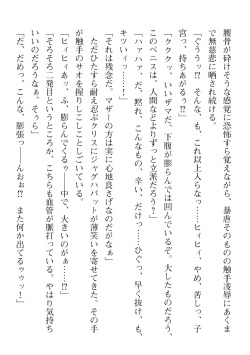 腰骨が砕けそうな感覚に恐怖すら覚えながら、暴虐そのものの触手凌辱にあくま
で無慈悲に晒され続ける。
「ぐううッ!?　そんな、も、これ以上入らな……ヒィヒィ、やめ、苦しっ、子
宮っ、持ちあがるぅ!?」
「ククッ、いいザマだ、下腹が膨らんでは凹んでいるぞ。大したものだろう、
このペニスは、人間などよりずっと立派だろう？」
「ハァハァ、だ、黙れ、こんなもの、辛い、だけっ……ひぐっ、早く抜け、も、
キツいィッ……！」
「それは残念だ、マザーの方は実に心地良さげなのだがなぁ」
　ただひたすら耐え忍ぶクリスにジャグハバットが薄笑いを寄せてきた。その手
が触手のサオを握りしこしことしごいている。
「ヒィヒィあッ、ふ、膨らんでくるぅ――中で、大きいのがぁ……!?」
「そろそろ二発目というところか、こちらも血管が脈打っている。やはり気持ち
いいのだろうなぁ、そぅら」
「だ、だめっ、こんな、膨張っ――んぉぉ!?　また何か出てるゥゥッ！」